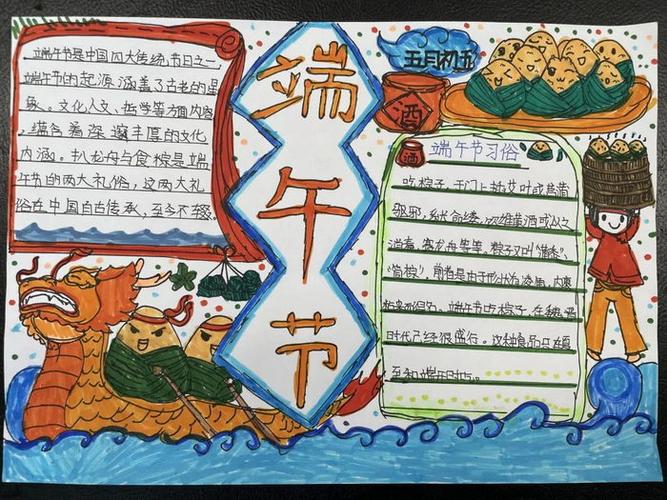 端午节是中国四大传统节日之一
端午节的起源涵盖了古老的星
象、文化人文、哲学等方面内容
蕴含着深邃丰厚的文化
内涵。扒龙舟与食粽是端
午节的两大礼俗，这两大礼
俗在中国自古传承，至今不辍。
端午节
五月初五
酒
酒
端午节习俗
吃粽子，于门上插艾叶或菖蒲
驱邪，系长命缕，饮雄黄酒或以之
消毒，赛龙舟等等，粽子又叫"角黍"、
"筒粽"，前者是由于形状有棱角，内裹
端午节吃粽子，在魏晋
时代已经很盛行。这种食品